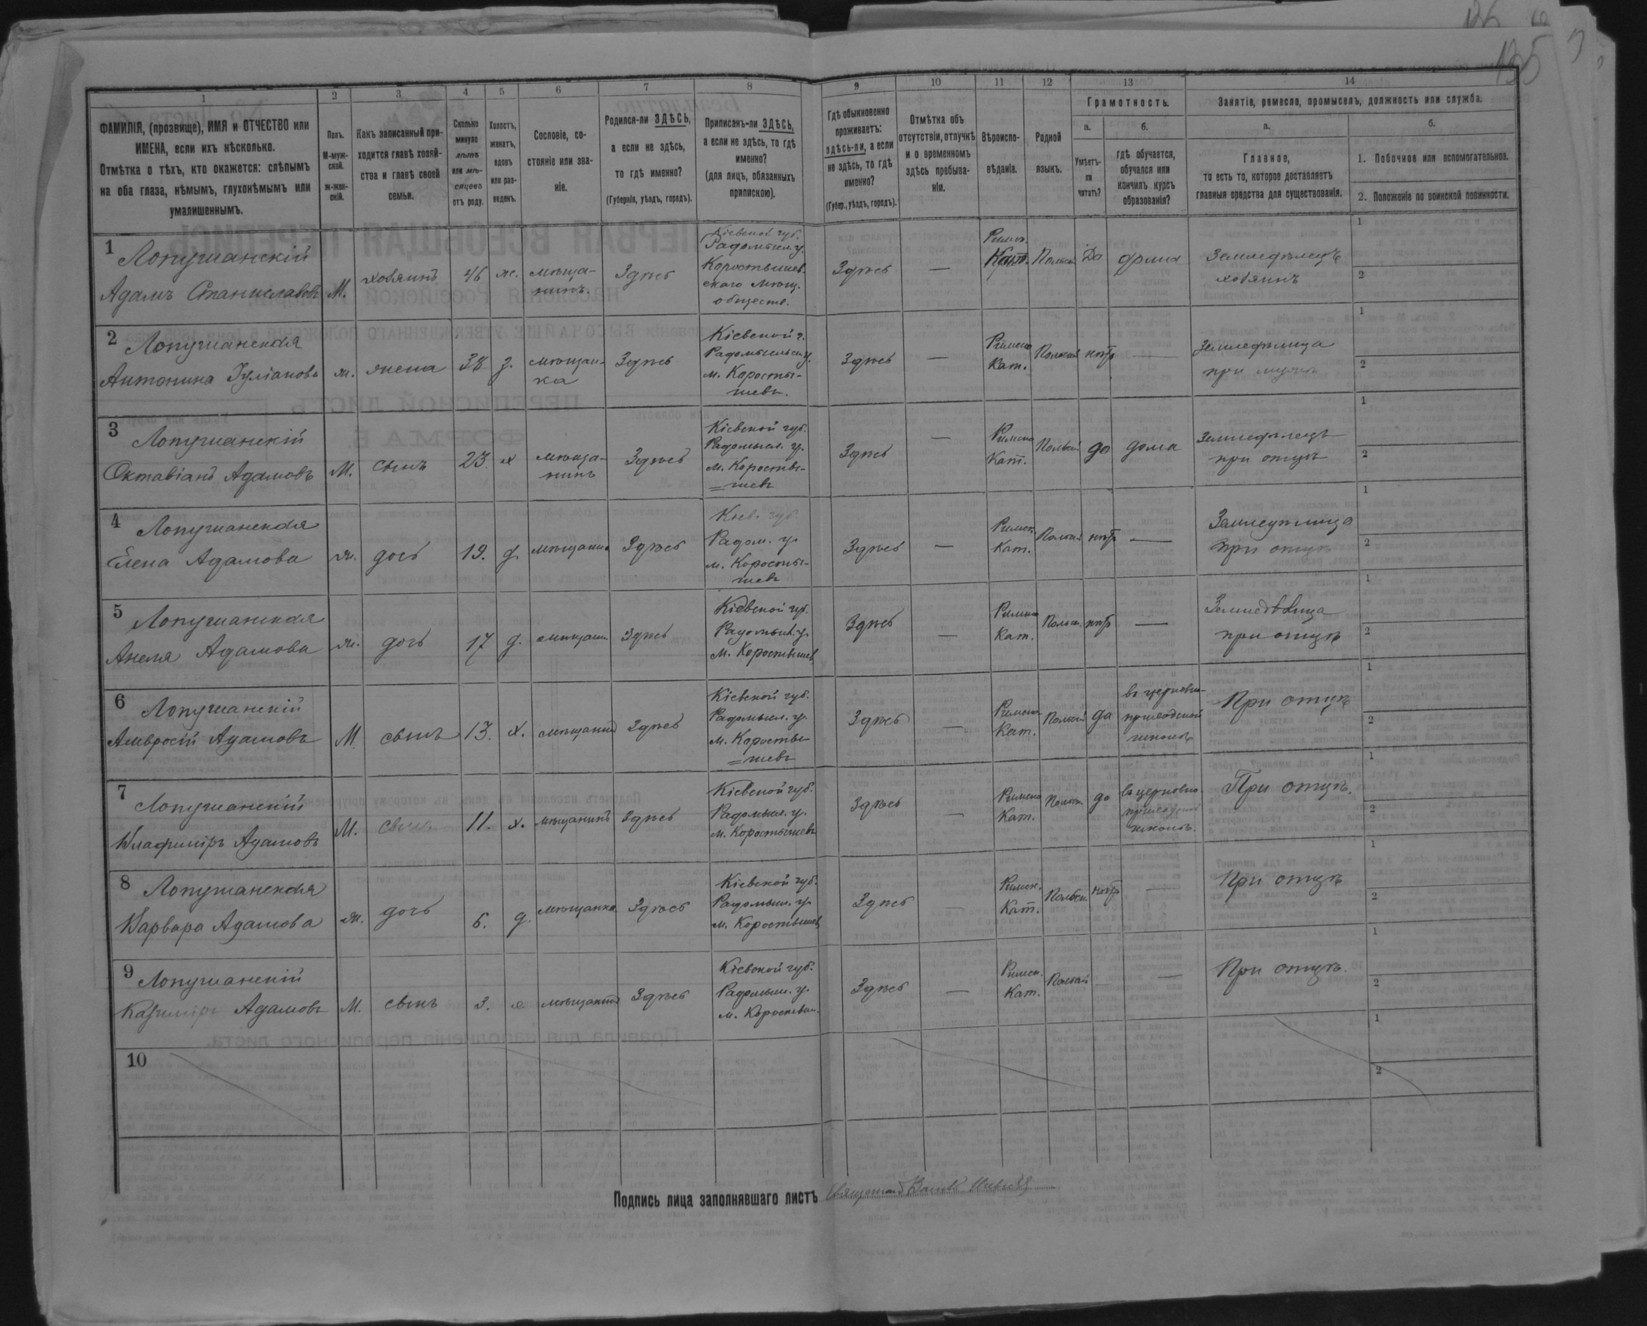 135
1
2
3
4
5
6
7
8
9
10
11
12
13
14
ФАМИЛІЯ, (прозвище), ИМЯ и ОТЧЕСТВО или
ИМЕНА, если ихъ нѣсколько.
Отмѣтка о тѣхъ, кто окажется: слѣпымъ
на оба глаза, нѣмымъ, глухонѣмымъ или
умалишеннымъ.
Полъ.
М-муж-
ской.
ж-жен-
скій.
Какъ записанный при-
ходится главѣ хозяй-
ства и главѣ своей
семьи.
Сколько
минуло
лѣтъ
или мѣ-
сяцевъ
отъ роду.
Холостъ,
женатъ,
вдовъ
или раз-
веденъ.
Сословіе, со-
стояніе или зва-
ніе.
Родился-ли ЗДѢСЬ,
а если не здѣсь,
то гдѣ именно?
(Губернія, уѣздъ, городъ).
Приписанъ-ли ЗДѢСЬ,
а если не здѣсь, то гдѣ
именно?
(для лицъ, обязанныхъ
припискою).
Гдѣ обыкновенно
проживаетъ:
здѣсь-ли, а если
не здѣсь, то гдѣ
именно?
(Губер., уѣздъ, городъ).
Отмѣтка объ
отсутствіи, отлучкѣ
и о временномъ
здѣсь пребыва-
ніи.
Вѣроиспо-
вѣданіе.
Родной
языкъ.
Грамотность.
а.
Умѣетъ-
ли
читать?
б.
гдѣ обучается,
обучался или
кончилъ курсъ
образованія?
Занятія, ремесло, промыселъ, должность или служба.
а.
Главное,
то есть то, которое доставляетъ
главныя средства для существованія.
б.
1. Побочное или вспомогательное.
2. Положеніе по воинской повинности.
1 Лопушанскій
Адамъ Станиславовъ М. хозяинъ 46 ж. мѣща-
нинъ Здѣсь
Кіевской губ.
Радомысл. у.
Коростышев.
скаго мѣщ.
обществ.
Здѣсь — Римск.
Кат. Польск Да дома Земледѣлецъ
хозяинъ
1
2
2 Лопушанская
Антонина Іуліанова ж. жена 38 з. мѣщан-
ка Здѣсь
Кіевской г.
Радомысльск. у.
м. Коросты-
шевъ.
Здѣсь — Римско
Кат. Польскій нѣтъ — Земледѣлица
при мужѣ
1
2
3 Лопушанскій
Октавіанъ Адамовъ М. сынъ 23 х мѣща-
нинъ Здѣсь
Кіевской губ.
Радомысл. у.
м. Коросты-
=шевъ
Здѣсь — Римско
Кат. Польскій да дома Земледѣлецъ
при отцѣ
1
2
4 Лопушанская
Елена Адамова ж. дочь 19. д. мѣщанка Здѣсь
Кіев. губ
Радом. у.
м. Коросты-
шевъ
Здѣсь — Римск.
Кат. Польскій нѣтъ — Земледѣлица
при отцѣ
1
2
5 Лопушанская
Анеля Адамова ж. дочь 17 д. мѣщан Здѣсь
Кіевской губ.
Радомысл. у.
м. Коростышев
Здѣсь — Римско
Кат. Польск. нѣтъ — Земледѣлица
при отцѣ
1
2
6 Лопушанскій
Амвросій Адамовъ М сынъ 13. х. мѣщанинъ Здѣсь
Кіевской губ.
Радомысл. у.
м. Коросты-
=шевъ
Здѣсь — Римско
Кат. Польскій да въ церковно-
приходской
школѣ При отцѣ
1
2
7 Лопушанскій
Владиміръ Адамовъ М. сынъ 11. х. мѣщанинъ Здѣсь
Кіевской губ.
Радомысл. у.
м. Коростышевъ
Здѣсь Римско
Кат. Польск. да въ церковно
приходской
школѣ. При отцѣ.
1
2
8 Лопушанская
Варвара Адамова ж. дочь 6. д. мѣщанка Здѣсь
Кіевской губ.
Радомысл. у.
м. Коростышев
Здѣсь — Римск.
Кат. Польскій нѣтъ — При отцѣ
1
2
9 Лопушанскій
Казиміръ Адамовъ М. сынъ 3. х мѣщанинъ Здѣсь
Кіевской губ.
Радомысл. у.
м. Коростыш.
Здѣсь — Римск.
Кат. Польскій — При отцѣ.
1
2
10
1
2
Подпись лица заполнявшаго листъ